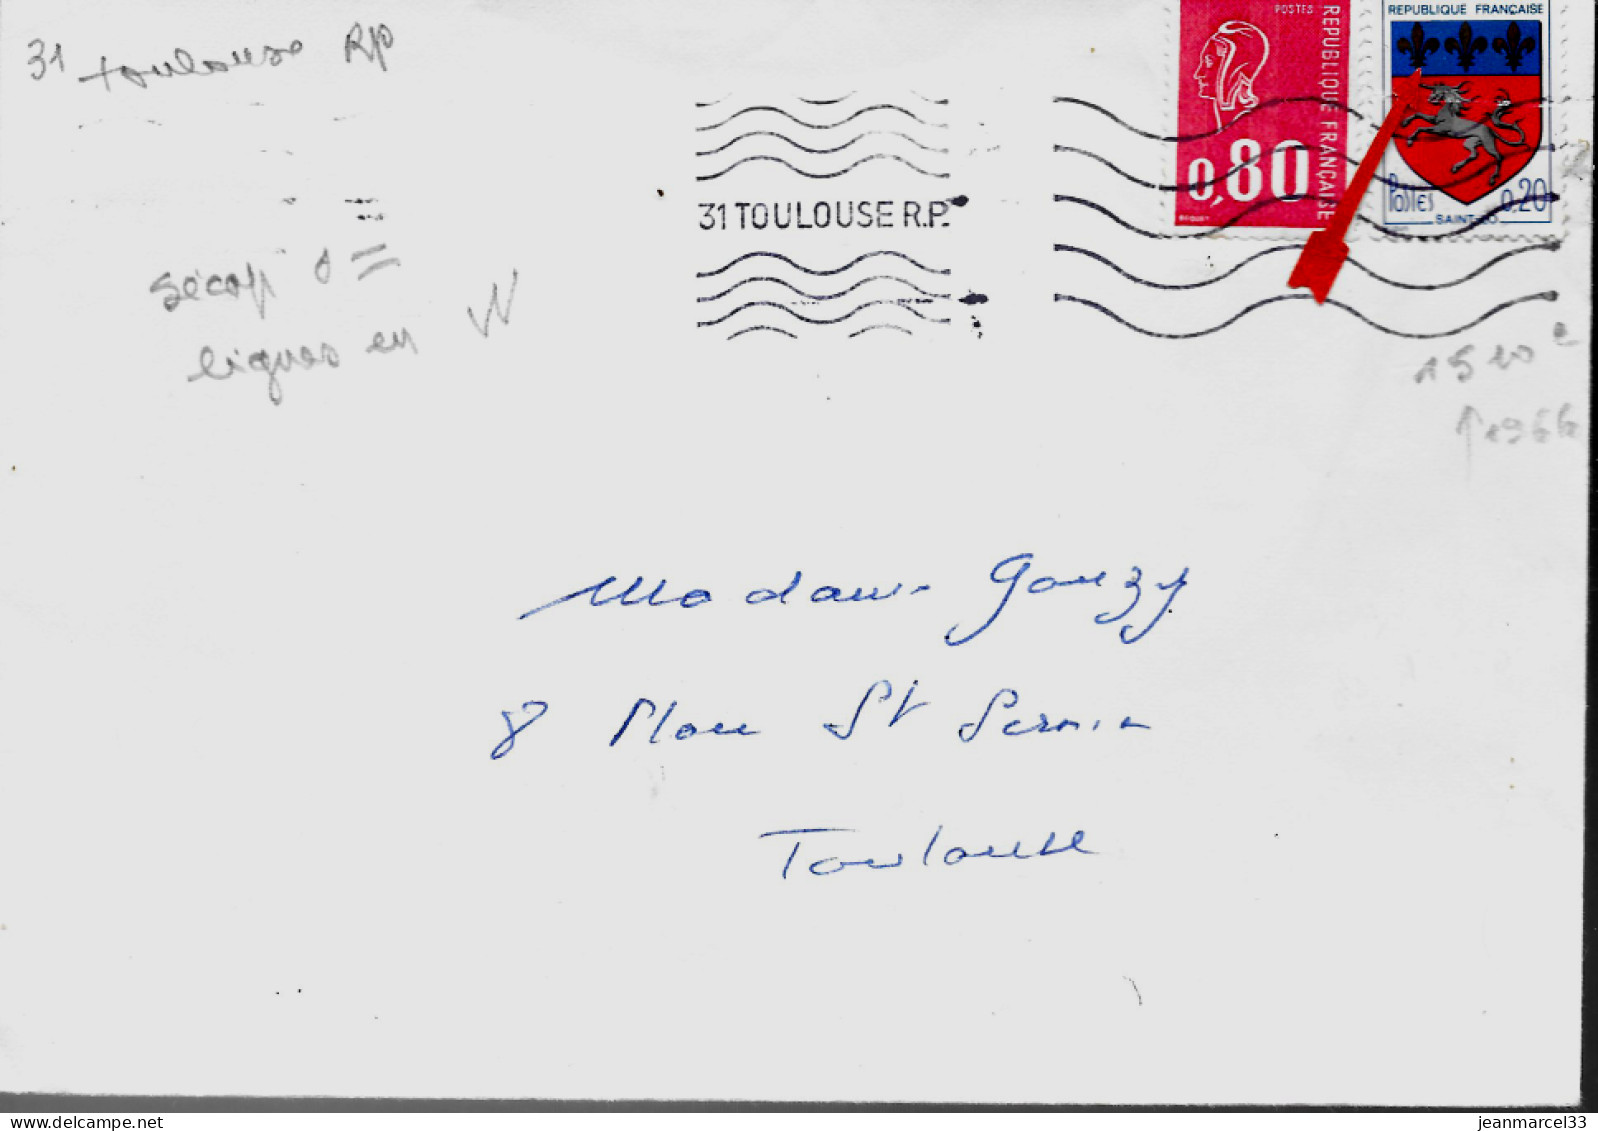 31 Toulouse RP
POSTES
REPUBLIQUE FRANÇAISE
0,80
BEQUET
REPUBLIQUE FRANÇAISE
Postes
0,20
SAINT-LO
31 TOULOUSE R.P.
Sécap
lignes en
1510
1966
Madame Gouzy
8 Place St Sernin
Toulouse
jeanmarcel33